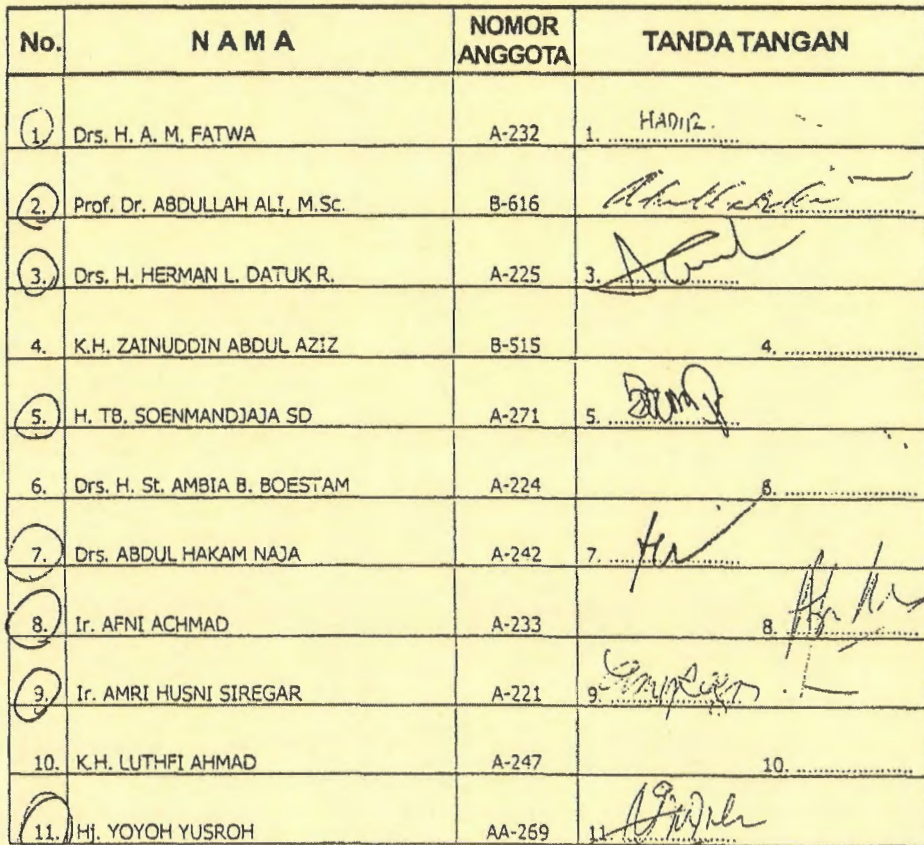 No. N A M A NOMOR ANGGOTA TANDA TANGAN
1. Drs. H. A. M. FATWA A-232 1. HADIR.
2. Prof. Dr. ABDULLAH ALI, M.Sc. B-616 2.
3. Drs. H. HERMAN L. DATUK R. A-225 3.
4. K.H. ZAINUDDIN ABDUL AZIZ B-515 4.
5. H. TB. SOENMANDJAJA SD A-271 5.
6. Drs. H. St. AMBIA B. BOESTAM A-224 6.
7. Drs. ABDUL HAKAM NAJA A-242 7.
8. Ir. AFNI ACHMAD A-233 8.
9. Ir. AMRI HUSNI SIREGAR A-221 9.
10. K.H. LUTHFI AHMAD A-247 10.
11. Hj. YOYOH YUSROH AA-269 11.